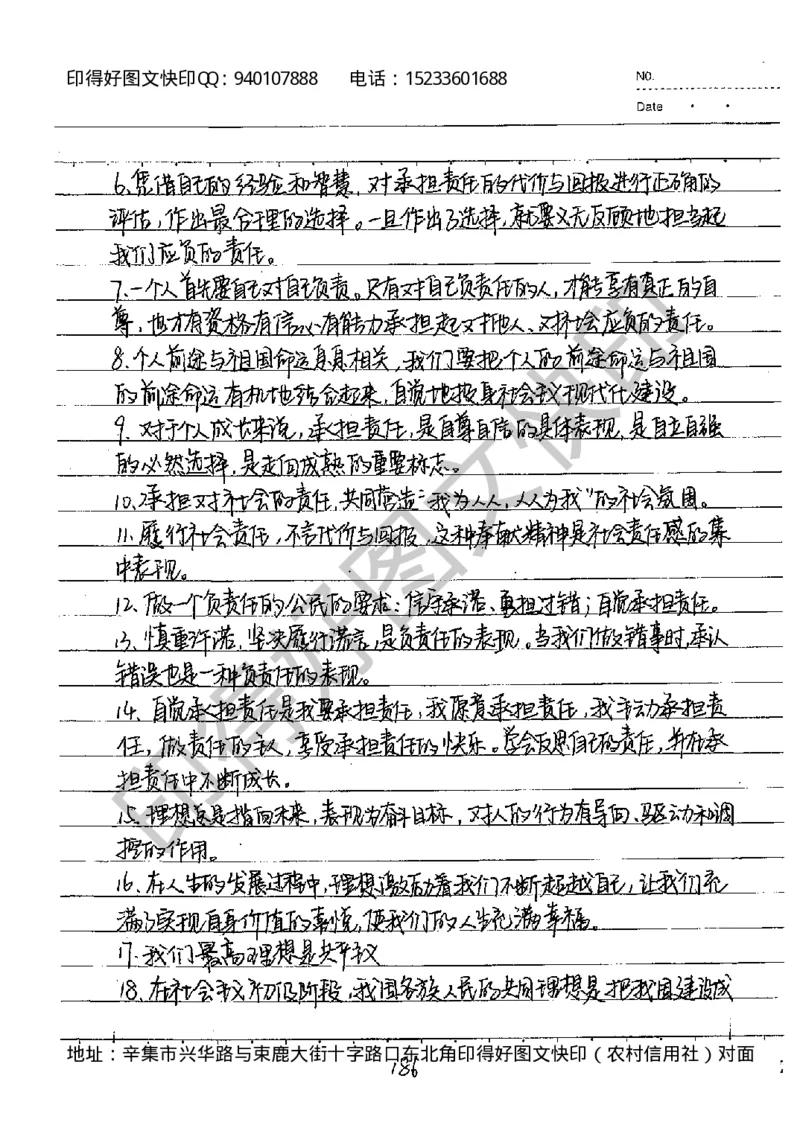 印得好图文快印QQ：940107888 电话：15233601688
NO.
Date
6.凭借自己的经验和智慧，对承担责任的代价与回报进行正确的
评估，作出最合理的选择。一旦作出了选择，就要义无反顾地担当起
我们应负的责任。
7.一个人首先要自己对自己负责。只有对自己负责任的人，才能享有真正的自
尊，也才有资格有信心有能力承担起对他人、对社会应负的责任。
8.个人前途与祖国命运息息相关，我们要把个人的前途命运与祖国
的前途命运有机地结合起来，自觉地投身社会主义现代化建设。
9.对于个人成长来说，承担责任，是自尊自信的具体表现，是自立自强
的必然选择，是走向成熟的重要标志。
10.承担对社会的责任，共同营造“我为人人，人人为我”的社会氛围。
11.履行社会责任，不言代价与回报，这种奉献精神是社会责任感的集
中表现。
12.做一个负责任的公民的要求：信守承诺、勇担过错；自觉承担责任。
13.慎重许诺，坚决履行诺言，是负责任的表现。当我们做错事时，承认
错误也是一种负责任的表现。
14.自觉承担责任是我要承担责任，我愿意承担责任，我主动承担责
任，做责任的主人，享受承担责任的快乐。学会反思自己的责任，并在承
担责任中不断成长。
15.理想总是指向未来，表现为奋斗目标，对人的行为有导向、驱动和调
控的作用。
16.在人生的发展过程中，理想激励着我们不断超越自己，让我们充
满了实现自身价值的喜悦，使我们的人生充满幸福。
17.我们最高理想是共产主义
18.在社会主义初级阶段，我国各族人民的共同理想是把我国建设成
地址：辛集市兴华路与束鹿大街十字路口东北角印得好图文快印（农村信用社）对面
186
印得好图文快印